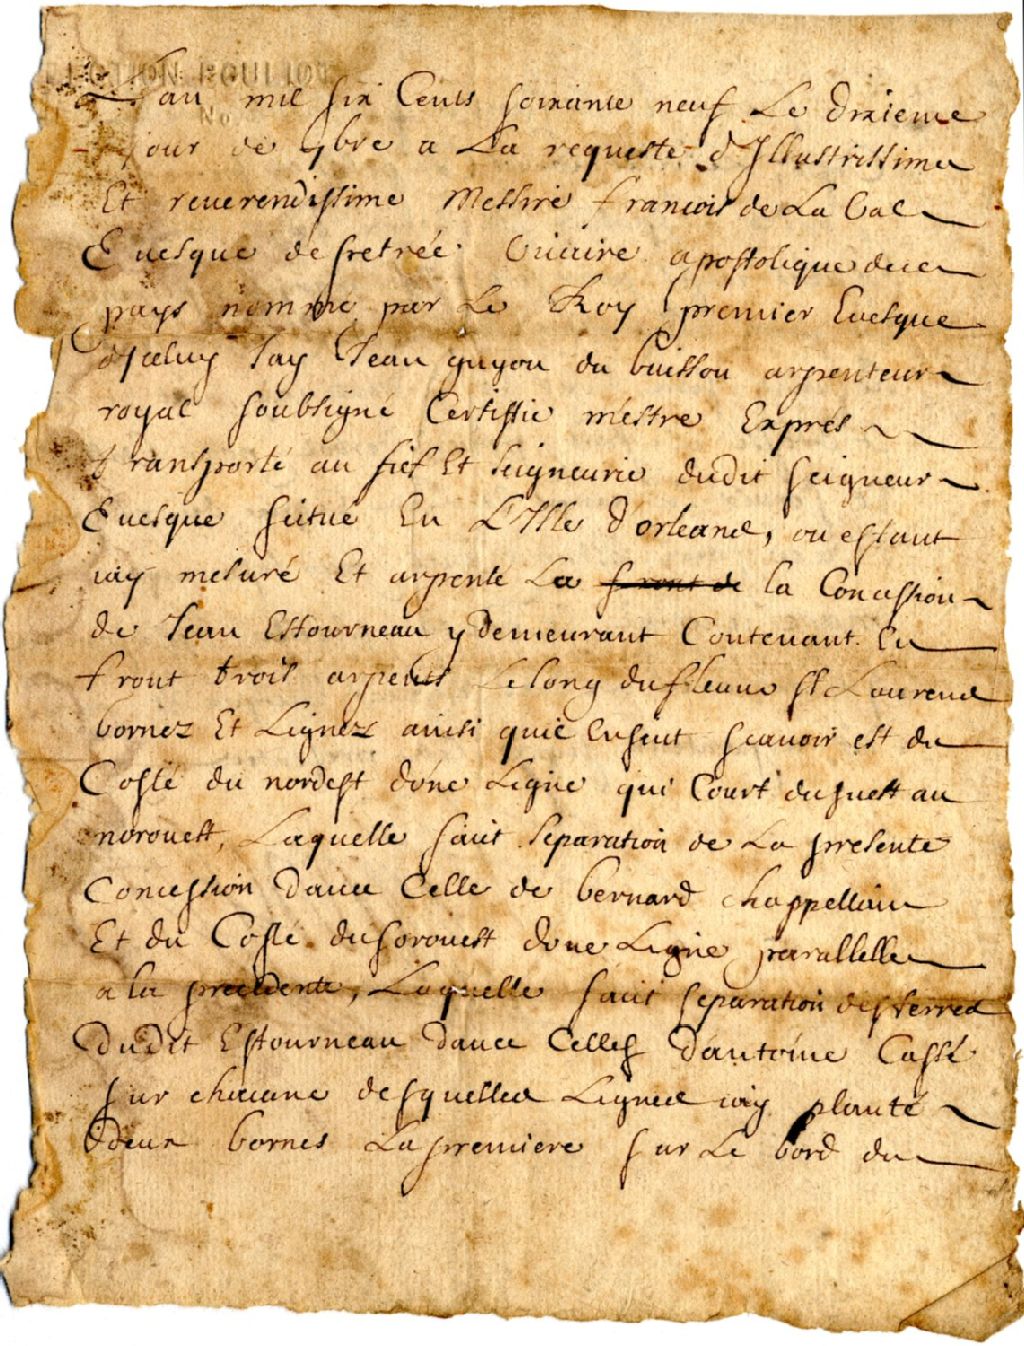 Lan mil six Cents soixante neuf Le dixieme
jour de 9bre a La requeste d'Illustrissime
Et reuerendissime Messire francois de La Val
Euesque de petrée Viccaire apostolique de ce
pays nommé par Le Roy premier Euesque
d'Jceluy Jay Jean guyon du buisson arpenteur
royal soubsigné Certiffie mestre Exprés
transporté au fief Et seigneurie dudit seigneur
Euesque scitué En L'Isle d'orleans, ou estant
iay mesuré Et arpenté La front de la Concession
de Jean Estourneau y demeurant Contenant En
front trois arpents Le long du fleuue st Laurens
bornez Et Lignez ainsi quil Ensuit scauoir est du
Costé du nordest dune Ligne qui Court du suest au
norouest, Laquelle fait separation de La presente
Concession dauec Celle de bernard chappellain
Et du Costé du sorouest dune Ligne parallelle
a la precedente, Laquelle fait separation des terres
Dudit Estourneau dauec Celles d'antoine Cassé
sur chacune desquelles Lignes iay planté
deux bornes La premiere sur Le bord du